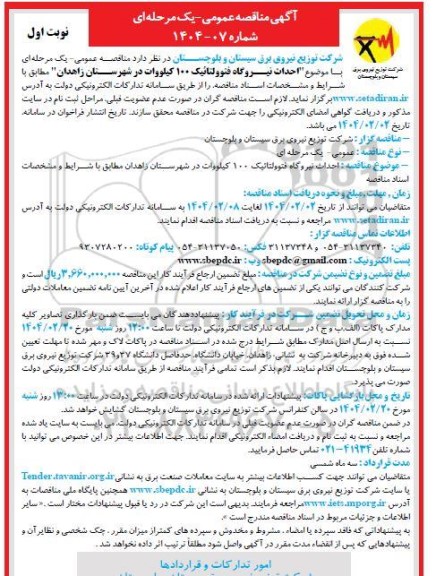 آگهی مناقصه عمومی-یک مرحله‌ای
شماره ۰۷-۱۴۰۴
نوبت اول
شرکت توزیع نیروی برق
سیستان و بلوچستان
شرکت توزیع نیروی برق سیستان و بلوچستان در نظر دارد مناقصه عمومی- یک مرحله‌ای
با موضوع "احداث نیروگاه فتوولتائیک ۱۰۰ کیلووات در شهرستان زاهدان" مطابق با
شرایط و مشخصات اسناد مناقصه، را از طریق سامانه تدارکات الکترونیکی دولت به آدرس
www.setadiran.ir برگزار نماید. لازم است مناقصه گران در صورت عدم عضویت قبلی، مراحل ثبت نام در سایت
مذکور و دریافت گواهی امضای الکترونیکی را جهت شرکت در مناقصه محقق سازند. تاریخ انتشار فراخوان در سامانه،
تاریخ ۱۴۰۴/۰۲/۰۲ می باشد.
– مناقصه گزار: شرکت توزیع نیروی برق سیستان و بلوچستان
– نوع مناقصه: عمومی- یک مرحله ای
– موضوع مناقصه: احداث نیروگاه فتوولتائیک ۱۰۰ کیلووات در شهرستان زاهدان مطابق با شرایط و مشخصات
اسناد مناقصه
زمان، مهلت، مبلغ و نحوه دریافت اسناد مناقصه:
متقاضیان می توانند از تاریخ ۱۴۰۴/۰۲/۰۲ لغایت ۱۴۰۴/۰۲/۰۸ به سامانه تدارکات الکترونیکی دولت به آدرس
www.setadiran.ir مراجعه و نسبت به دریافت اسناد مناقصه اقدام نمایند.
اطلاعات تماس مناقصه گزار:
تلفن: ۳۱۱۳۷۳۴۰-۰۵۴ و ۳۱۱۳۷۳۴۸ فکس: ۳۱۱۳۷۰۵۰-۰۵۴ پیام کوتاه: ۹۲۰۷۲۸۰۲۰۰
پست الکترونیک: sbepdc@gmail.com وب: www.sbepdc.ir
مبلغ تضمین و نوع تضمین شرکت در مناقصه: مبلغ تضمین ارجاع فرآیند کار این مناقصه ۳،۶۶۰،۰۰۰،۰۰۰ ریال است و
شرکت کنندگان می توانند یکی از تضمین های ارجاع فرآیند کار اعلام شده در آخرین آیین نامه تضمین معاملات دولتی
را به مناقصه گزار ارائه نمایند.
زمان و محل تحویل تضمین شرکت در فرآیند کار: پیشنهاددهندگان می بایست ضمن بارگذاری تصاویر کلیه
مدارک پاکات (الف، ب و ج) در سامانه تدارکات الکترونیکی دولت تا ساعت ۱۲:۰۰ روز شنبه مورخ ۱۴۰۴/۰۲/۲۰
نسبت به ارسال اصل مدارک مطابق شرایط درج شده در اسناد مناقصه در پاکات لاک و مهر شده تا مهلت تعیین
شده فوق به دبیرخانه شرکت به نشانی: زاهدان، خیابان دانشگاه، حدفاصل دانشگاه ۲۷و۳۹ شرکت توزیع نیروی برق
سیستان و بلوچستان اقدام نمایند. لازم بذکر است تمامی فرآیند مناقصه از طریق سامانه تدارکات الکترونیکی دولت
صورت می پذیرد.
تاریخ و محل بازگشایی پاکات: پیشنهادات ارائه شده در سامانه تدارکات الکترونیکی دولت در ساعت ۱۳:۰۰ روز شنبه
مورخ ۱۴۰۴/۰۲/۲۰ در سالن کنفرانس شرکت توزیع نیروی برق سیستان و بلوچستان گشایش خواهد شد.
در ضمن مناقصه گران در صورت عدم عضویت قبلی در سامانه تدارکات الکترونیکی دولت، می بایست به سایت یاد شده
مراجعه و نسبت به ثبت نام و دریافت امضاء الکترونیکی اقدام نمایند. جهت اطلاعات بیشتر در این خصوص می توانید با
شماره تلفن ۴۱۹۳۴-۰۲۱ تماس حاصل فرمایید.
مدت قرارداد: سه ماه شمسی
متقاضیان می توانند جهت کسب اطلاعات بیشتر به سایت معاملات صنعت برق به نشانی Tender.tavanir.org.ir
یا سایت شرکت توزیع نیروی برق سیستان و بلوچستان به نشانی www.sbepdc.ir همچنین پایگاه ملی مناقصات به
آدرس www.iets.mporg.ir مراجعه فرمایند. بدیهی است این شرکت در رد یا قبول پیشنهادات مختار است.« سایر
اطلاعات و جزئیات مربوط در اسناد مناقصه مندرج است.»
به پیشنهاداتی که فاقد سپرده یا امضاء، مشروط و مخدوش و سپرده های کمتر از میزان مقرر، چک شخصی و نظایر آن و
پیشنهادهایی که پس از انقضاء مدت مقرر در آگهی واصل شود مطلقاً ترتیب اثر داده نخواهد شد.
امور تدارکات و قراردادها